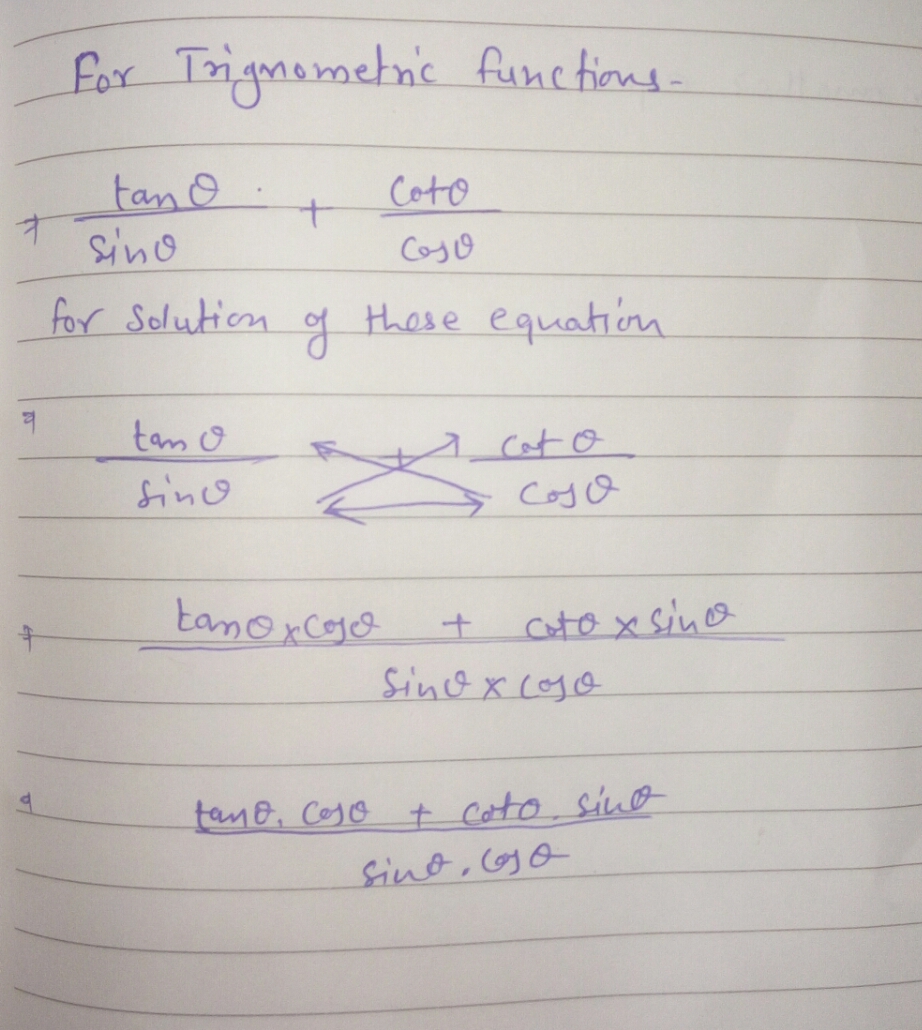 For Trignometric functions-
⇒ tanθ/sinθ + cotθ/cosθ
for solution of these equation
⇒ tanθ/sinθ + cotθ/cosθ
⇒ tanθ×cosθ + cotθ×sinθ
sinθ×cosθ
⇒ tanθ. cosθ + cotθ. sinθ
sinθ. cosθ